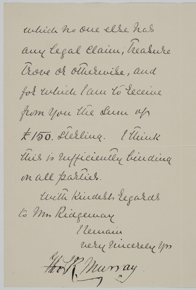 which no one else has
any legal claim, treasure
trove or otherwise, and
for which I am to receive
from you the sum of
£150. sterling. I think
this is sufficiently binding
on all parties.
With kindest regards
to Mrs Ridgeway
I remain
very sincerely yrs
Thos R. Murray